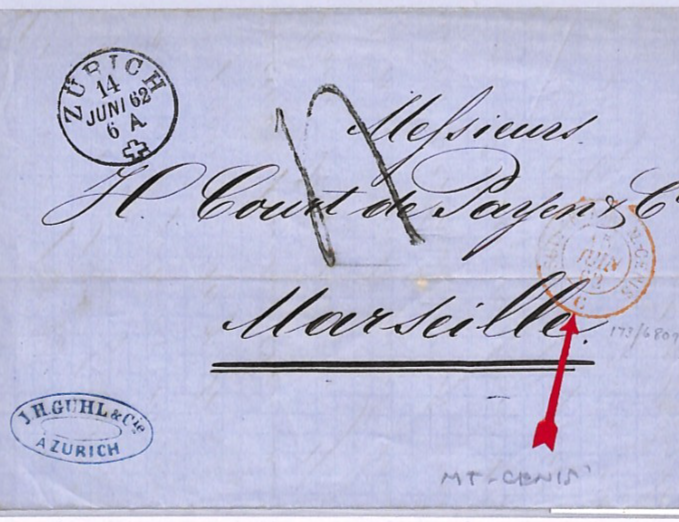 ZÜRICH
14
JUNI 62
6 A
Messieurs
H. Court de Payen & C
Marseille.
M-CENIS
15
JUIN
62
C
173/6809
J.H. GUHL & Cie
A ZURICH
MT-CENIS